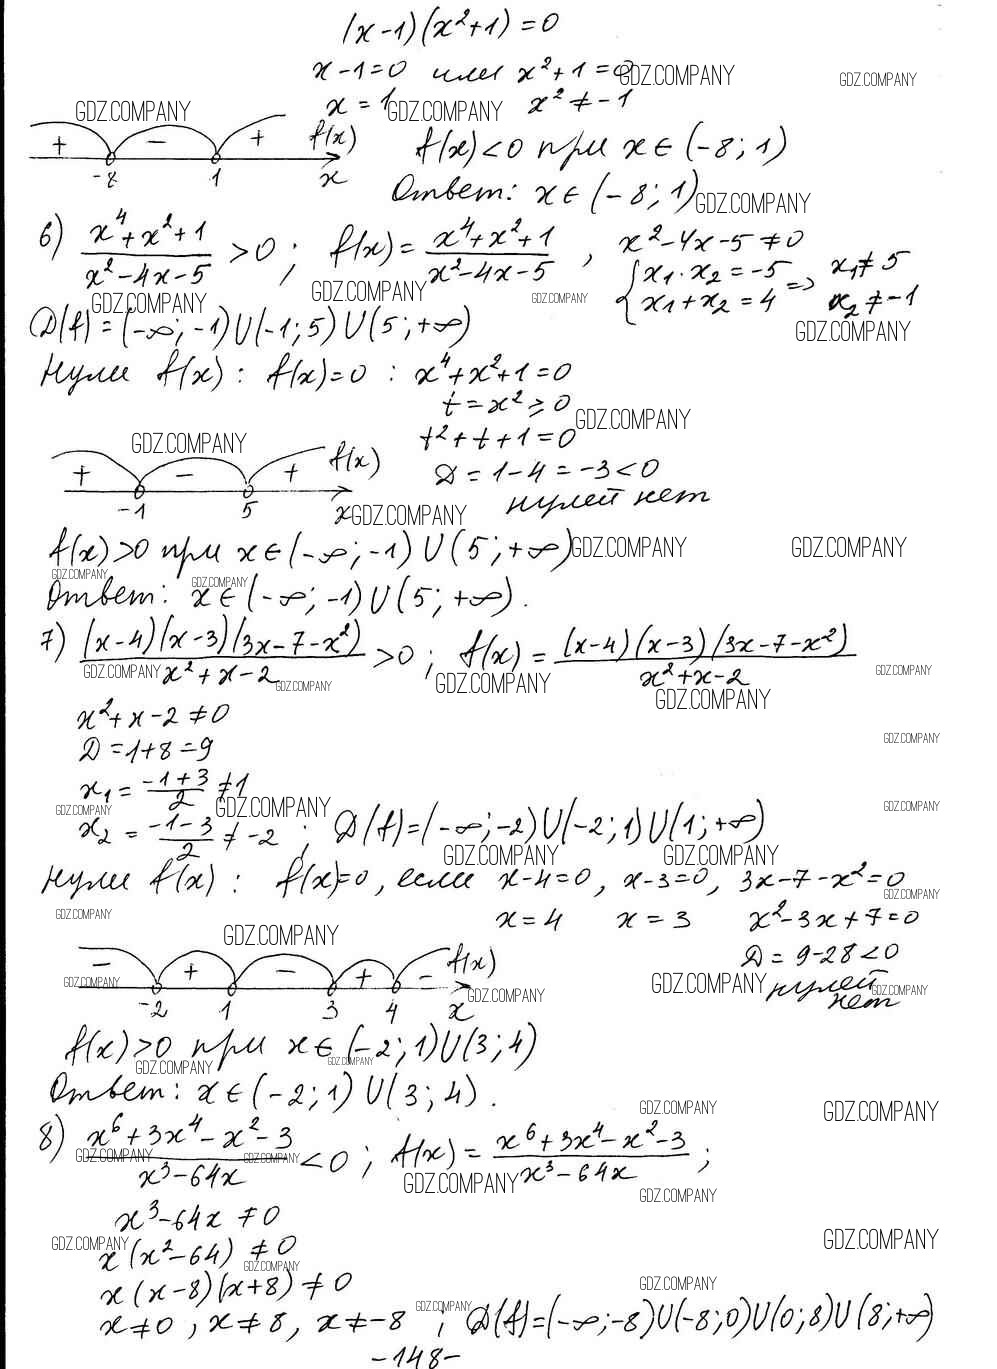 (x-1)(x²+1)=0
x-1=0 или x²+1=0 GDZ.COMPANY GDZ.COMPANY
GDZ.COMPANY x=1 GDZ.COMPANY x²≠-1
+ - + f(x) f(x)<0 при x∈(-8;1)
-8 1 x
Ответ: x∈(-8;1) GDZ.COMPANY
6) (x⁴+x²+1)/(x²-4x-5) >0; f(x)=(x⁴+x²+1)/(x²-4x-5), x²-4x-5≠0
{x₁·x₂=-5 => x₁≠5
{x₁+x₂=4 x₂≠-1
GDZ.COMPANY GDZ.COMPANY GDZ.COMPANY
D(f)=(-∞;-1)U(-1;5)U(5;+∞) GDZ.COMPANY
Нули f(x): f(x)=0: x⁴+x²+1=0
t=x²≥0 GDZ.COMPANY
GDZ.COMPANY t²+t+1=0
+ - + f(x) D=1-4=-3<0
-1 5 x GDZ.COMPANY нулей нет
f(x)>0 при x∈(-∞;-1)U(5;+∞) GDZ.COMPANY GDZ.COMPANY
GDZ.COMPANY GDZ.COMPANY
Ответ: x∈(-∞;-1)U(5;+∞).
7) ((x-4)(x-3)(3x-7-x²))/(x²+x-2) >0; f(x)=((x-4)(x-3)(3x-7-x²))/(x²+x-2)
GDZ.COMPANY GDZ.COMPANY GDZ.COMPANY GDZ.COMPANY GDZ.COMPANY
x²+x-2≠0
D=1+8=9 GDZ.COMPANY
x₁=(-1+3)/2≠1
GDZ.COMPANY GDZ.COMPANY GDZ.COMPANY
x₂=(-1-3)/2≠-2; D(f)=(-∞;-2)U(-2;1)U(1;+∞)
GDZ.COMPANY GDZ.COMPANY
Нули f(x): f(x)=0, если x-4=0, x-3=0, 3x-7-x²=0
GDZ.COMPANY GDZ.COMPANY
x=4 x=3 x²-3x+7=0
GDZ.COMPANY
- + - + - f(x) D=9-28<0
GDZ.COMPANY GDZ.COMPANY GDZ.COMPANY нулей GDZ.COMPANY
-2 1 3 4 x нет
f(x)>0 при x∈(-2;1)U(3;4)
GDZ.COMPANY GDZ.COMPANY
Ответ: x∈(-2;1)U(3;4).
GDZ.COMPANY GDZ.COMPANY
8) (x⁶+3x⁴-x²-3)/(x³-64x) <0; f(x)=(x⁶+3x⁴-x²-3)/(x³-64x);
GDZ.COMPANY GDZ.COMPANY GDZ.COMPANY GDZ.COMPANY
x³-64x≠0
GDZ.COMPANY GDZ.COMPANY
x(x²-64)≠0
GDZ.COMPANY
x(x-8)(x+8)≠0 GDZ.COMPANY
GDZ.COMPANY
x≠0, x≠8, x≠-8; D(f)=(-∞;-8)U(-8;0)U(0;8)U(8;+∞)
-148-